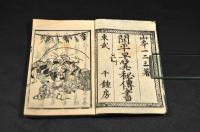 山本一二三著
開平早算秘傳書
東武 千鍾房